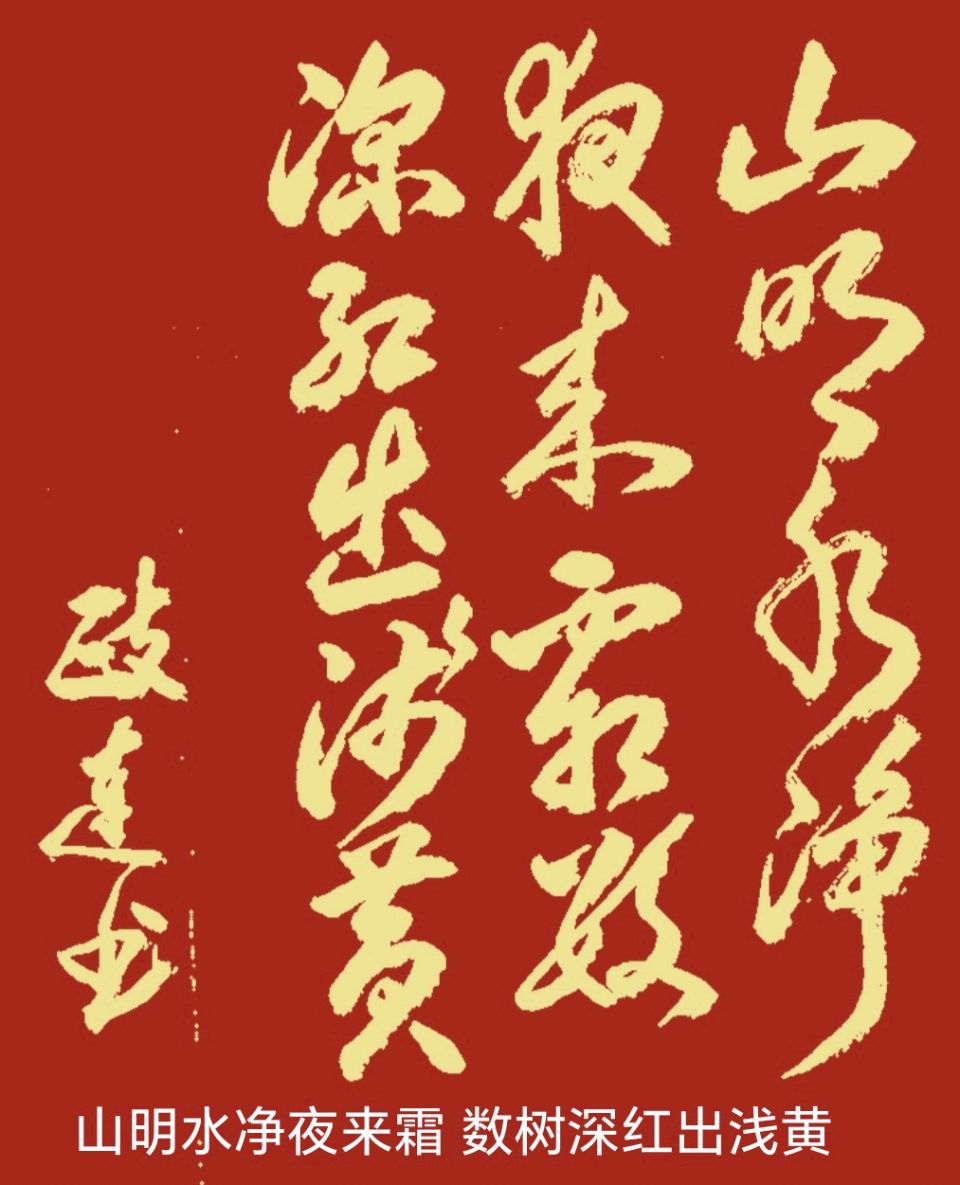 山明水净
夜来霜数
深红出浅黄
书
山明水净夜来霜 数树深红出浅黄